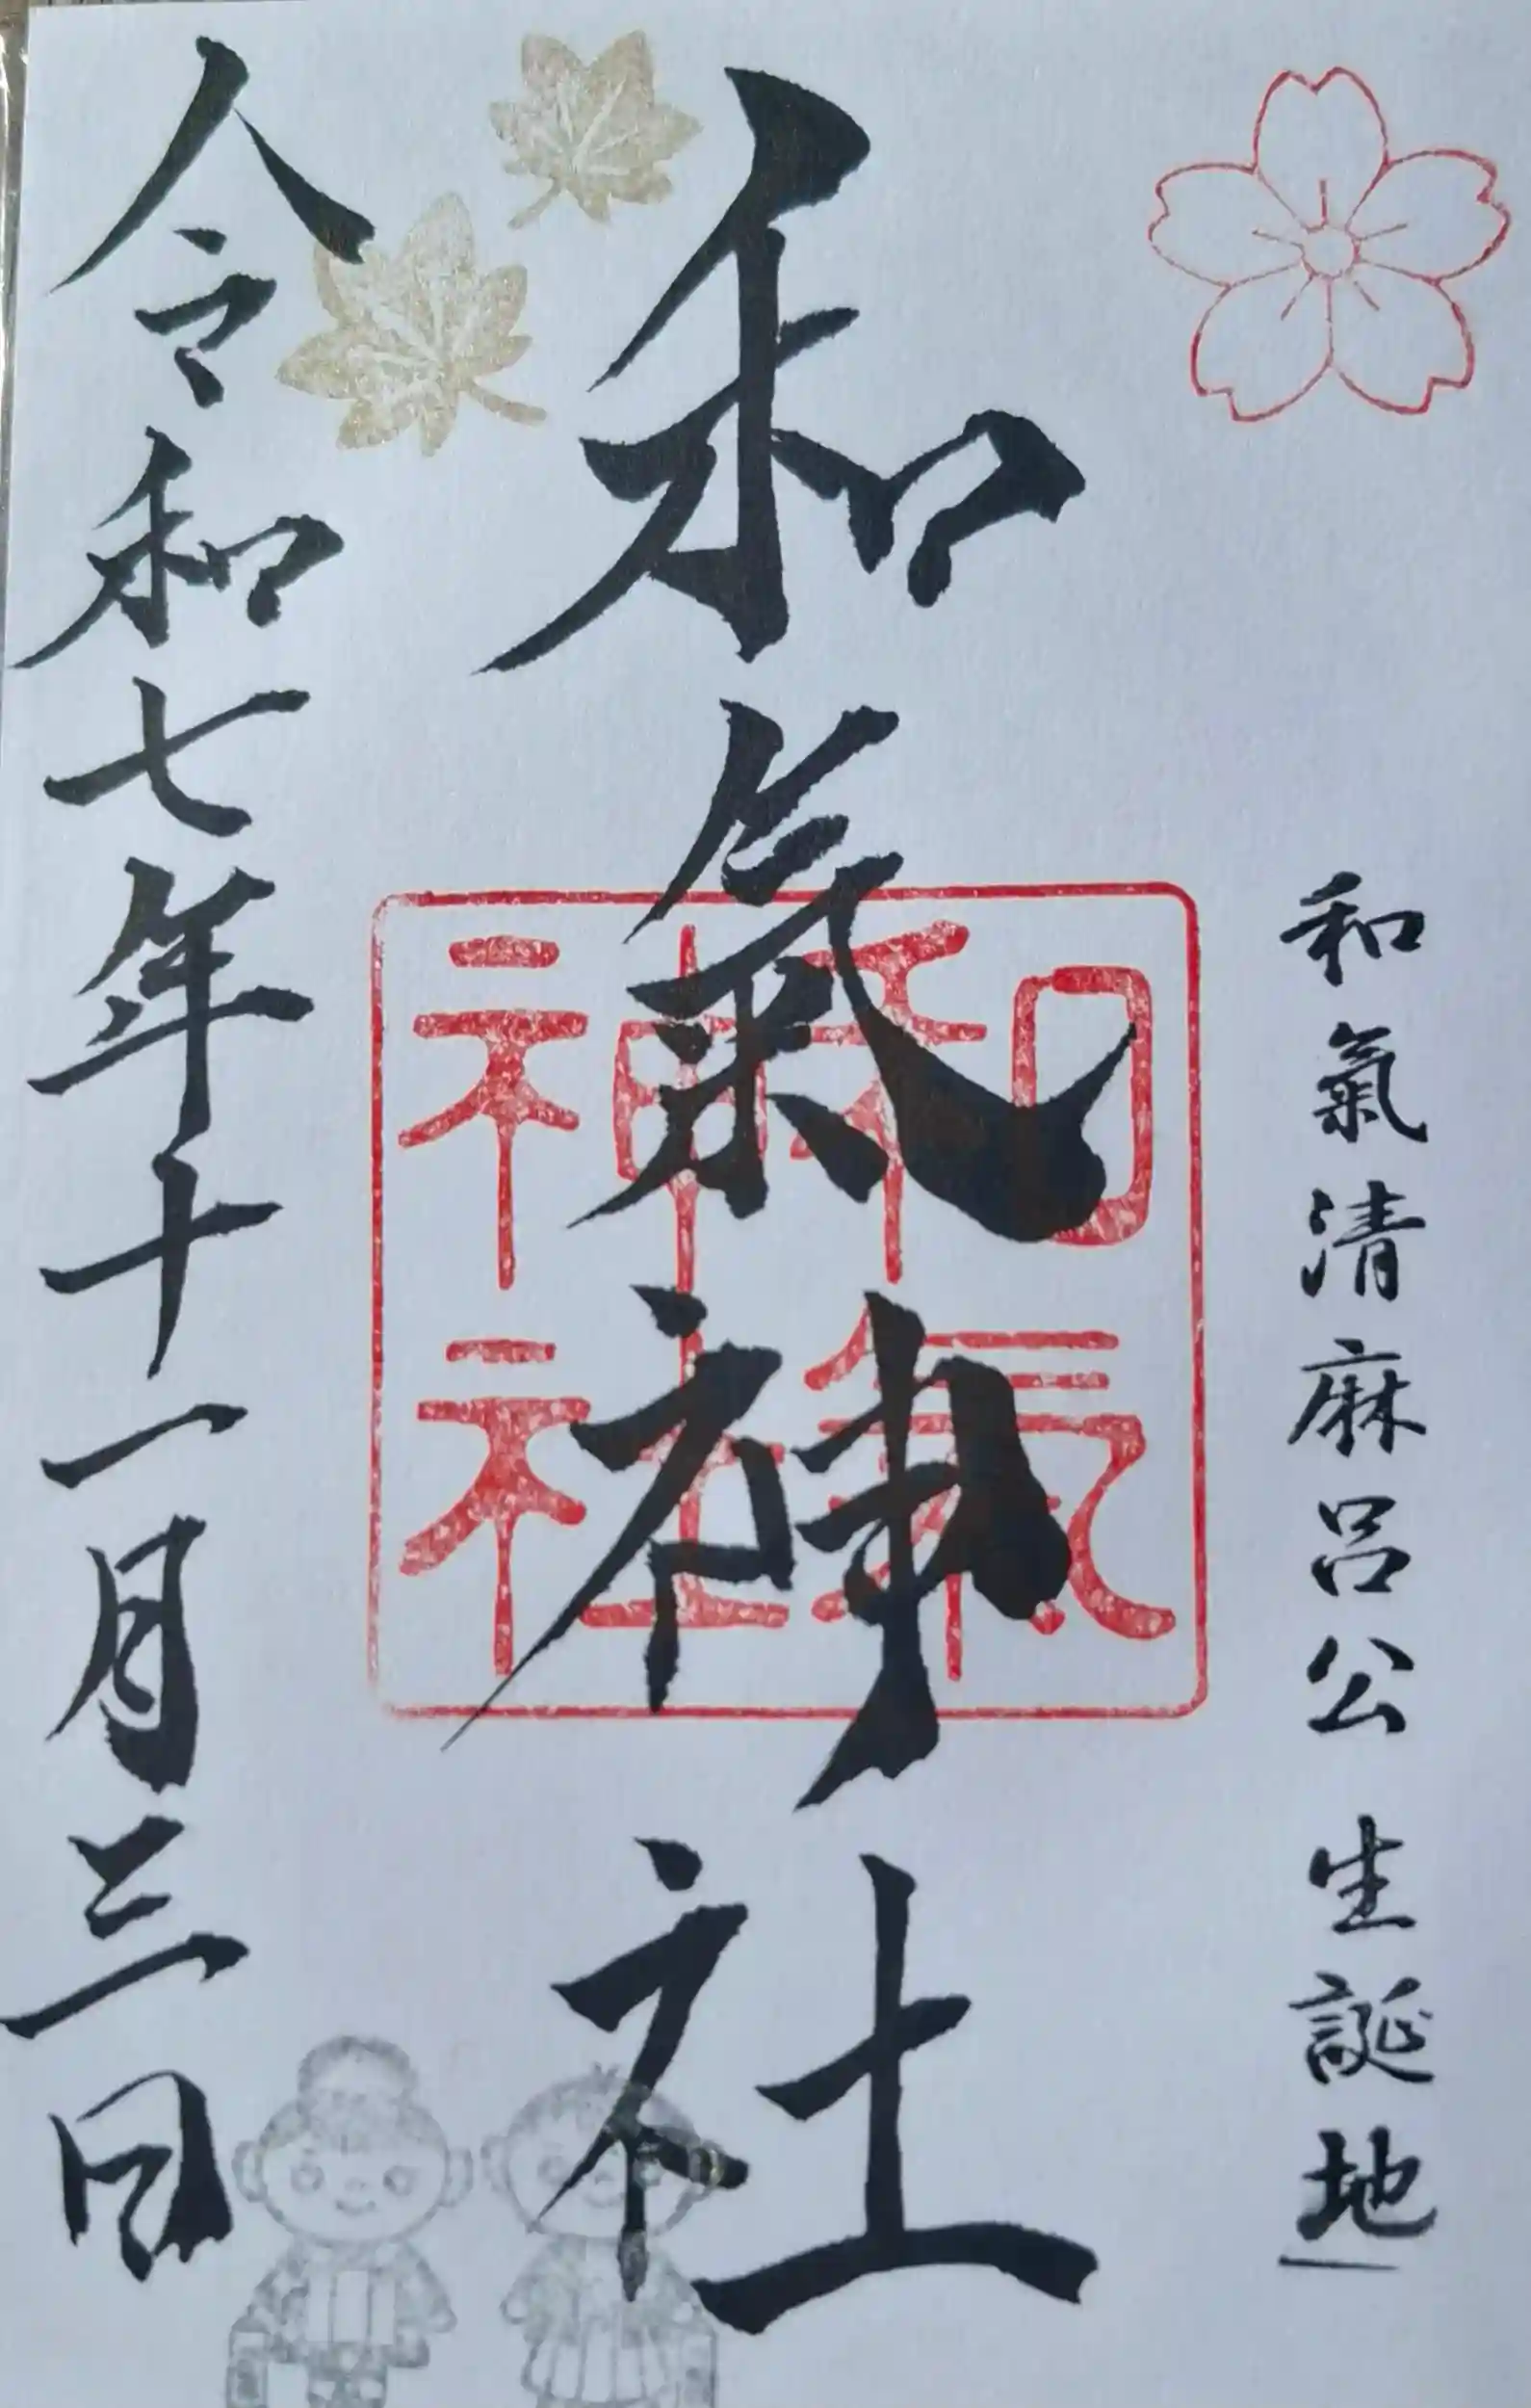 和氣清麻呂公 生誕地
和氣神社
和氣神社
令和七年十一月三日